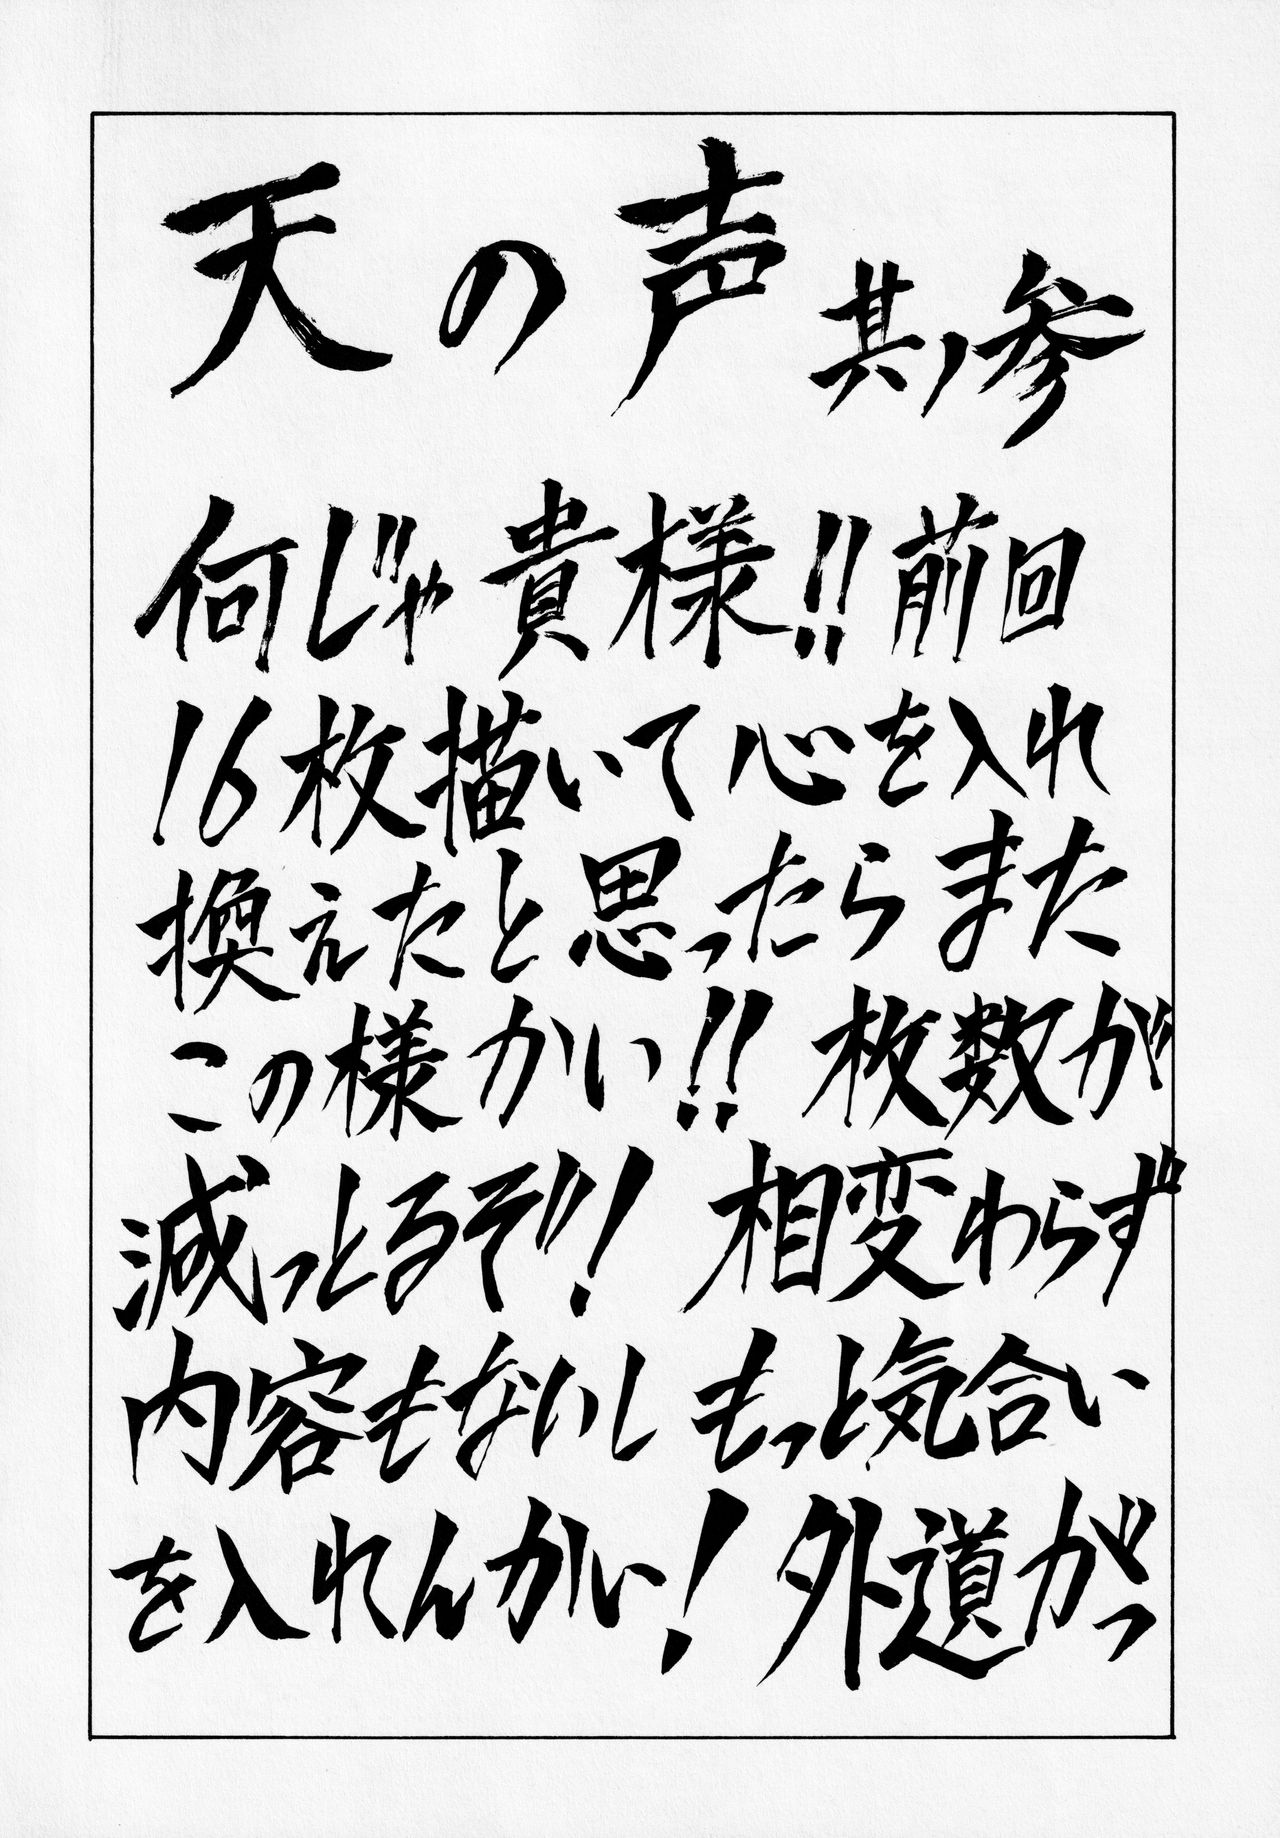 天の声 其ノ参
何じゃ貴様!!前回
16枚描いて心を入れ
換えたと思ったらまた
この様かい!!枚数が
減っとるぞ!相変わらず
内容もないしもっと気合い
を入れんかい!外道がっ